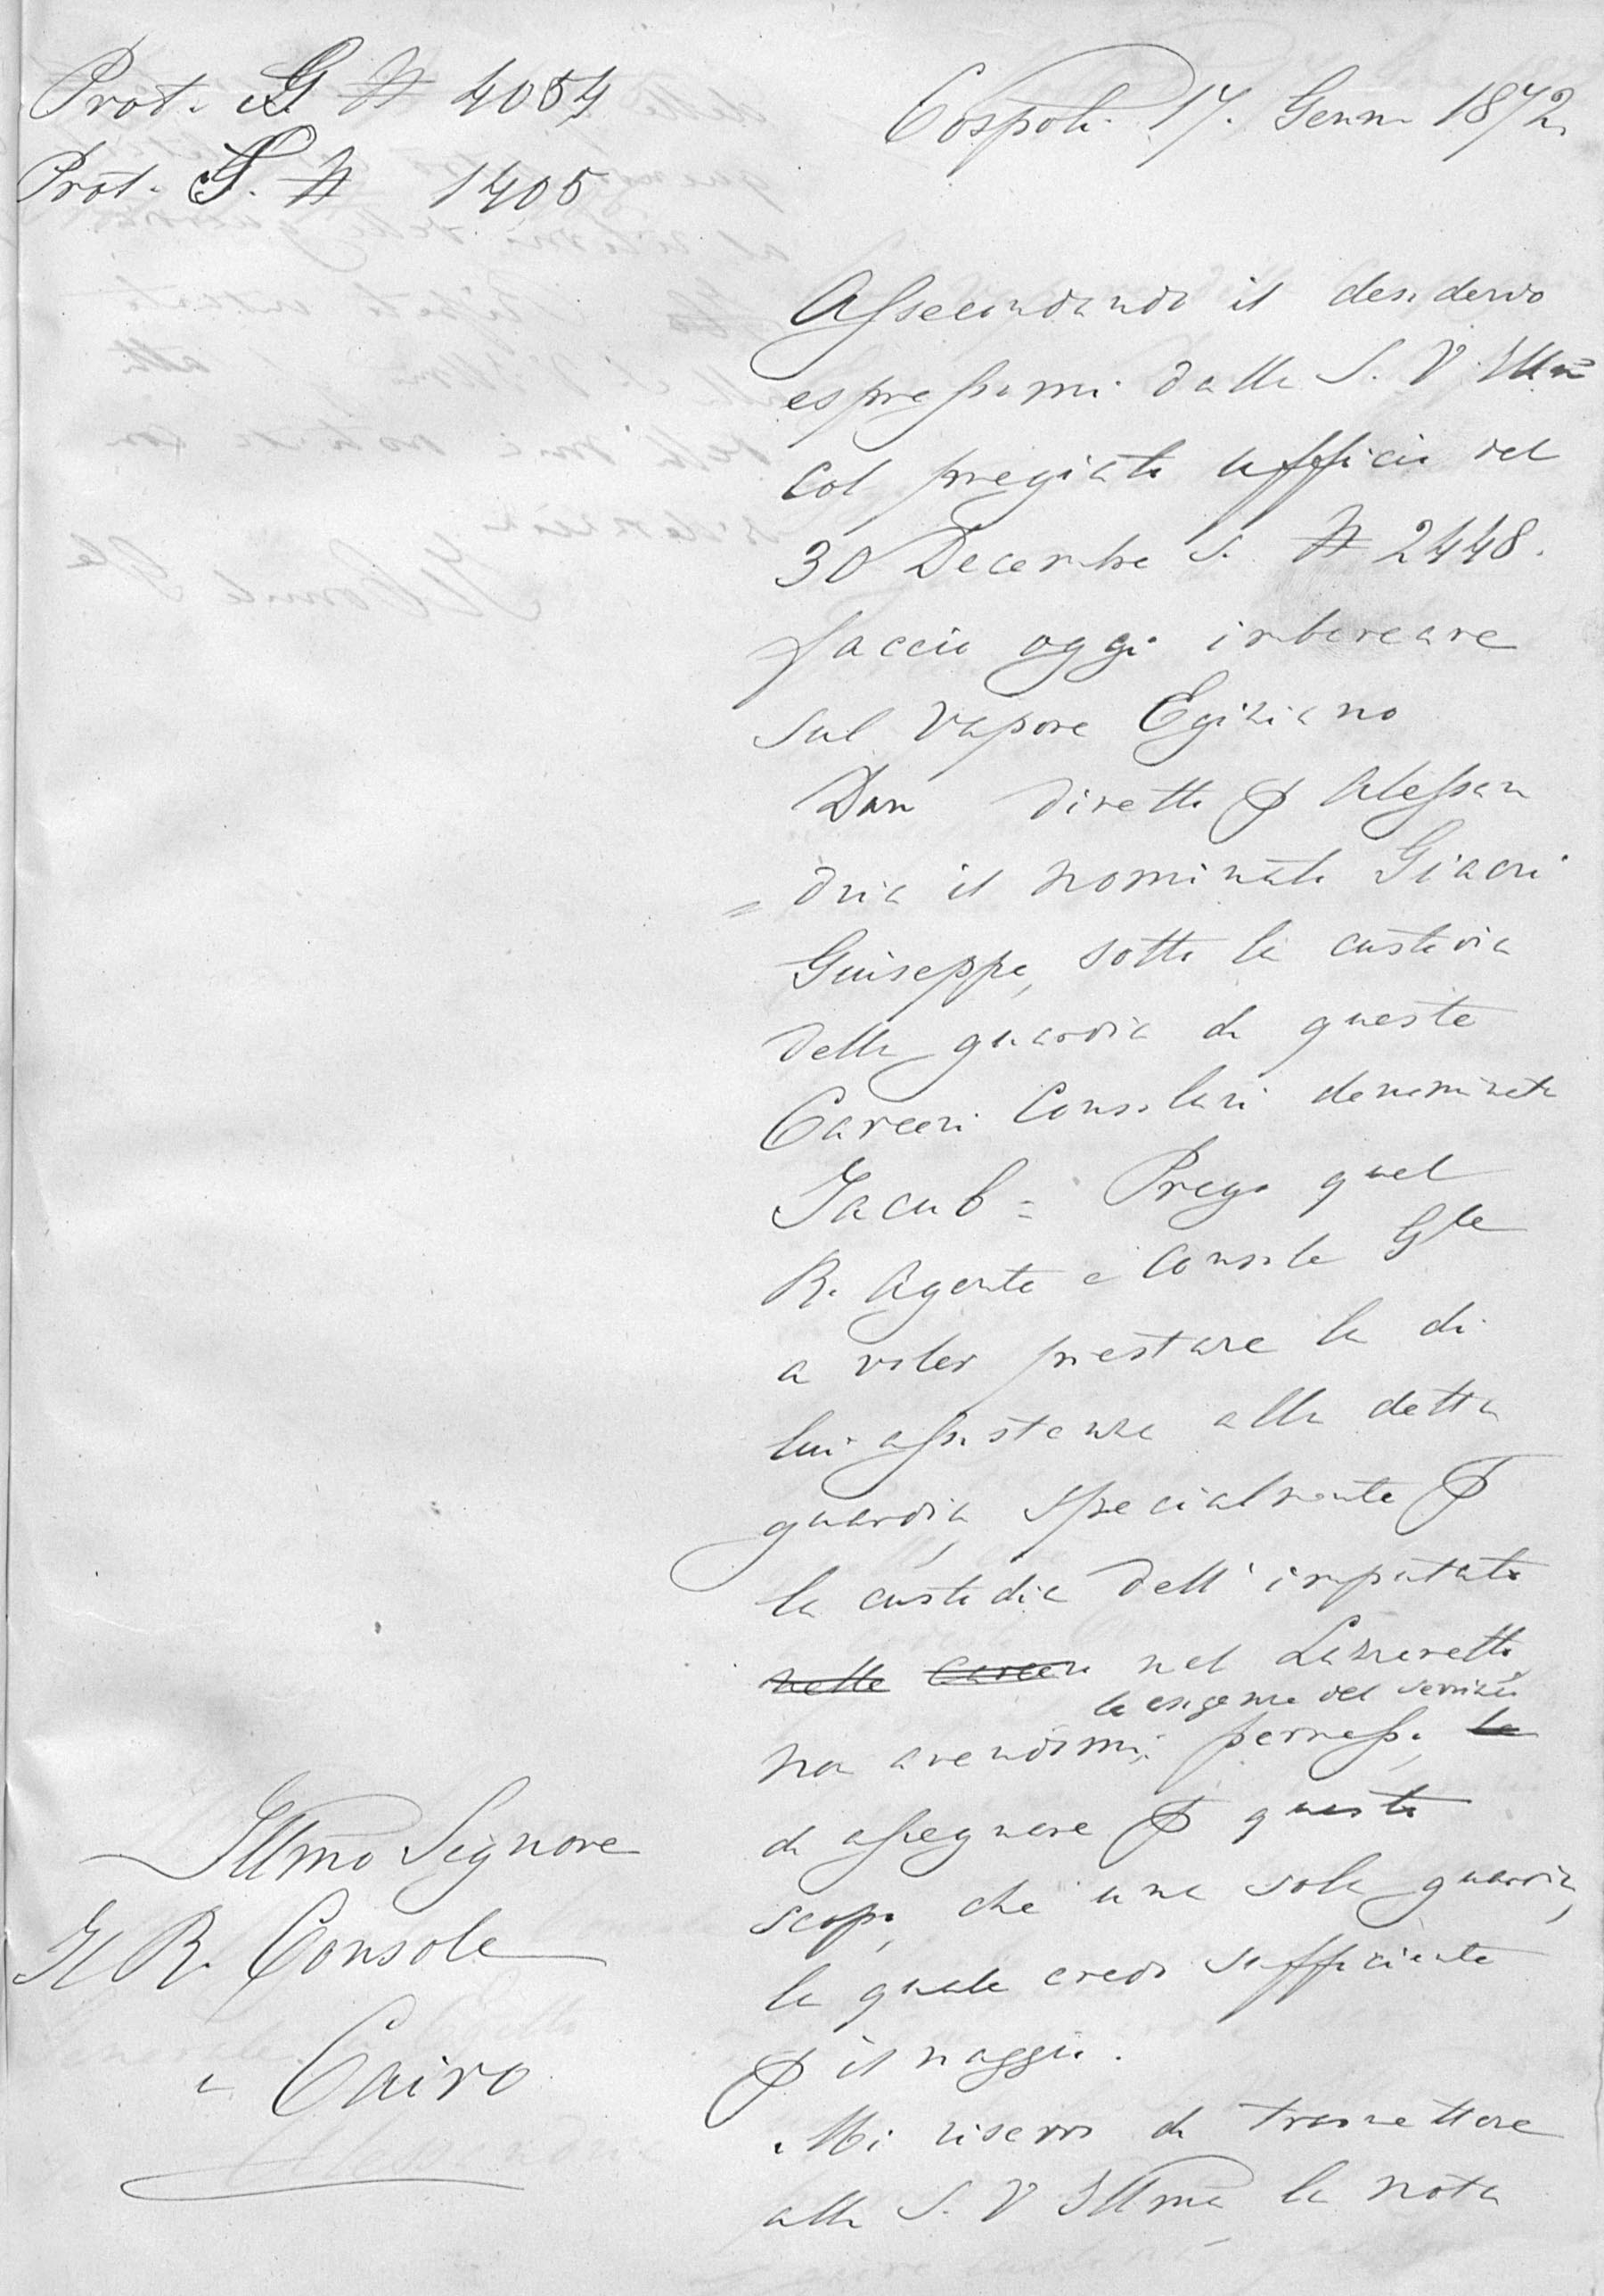 Prot. G N 4054
Prot. S. N 1405
Cospoli 17. Genn 1872
Assecondando il desiderio
espressomi dalla S. V. Illma
col pregiato ufficio del
30 Decembre s. N 2448.
faccio oggi imbarcare
sul vapore Egiziano
Dan diretto p Alessan
= dria il nominato Giacri
Guiseppe, sotto la custodia
della guardia di queste
Carceri Consolari denominata
Jacub = Prego quel
R. Agente e Console Gle
a voler prestare la di
lui assistenza alla detta
guardia, specialmente p
la custodia dell' imputato
nelle Carceri nel Lazzaretto
le esigenze del servizio
non avendomi permesso, le
di assegnare p questo
scopo, che una sola guardia,
la quale credo sufficiente
p il viaggio.
Mi riservo di trasmettere
alla S. V Illma la nota
Illmo Signore
Il R. Console
a Cairo